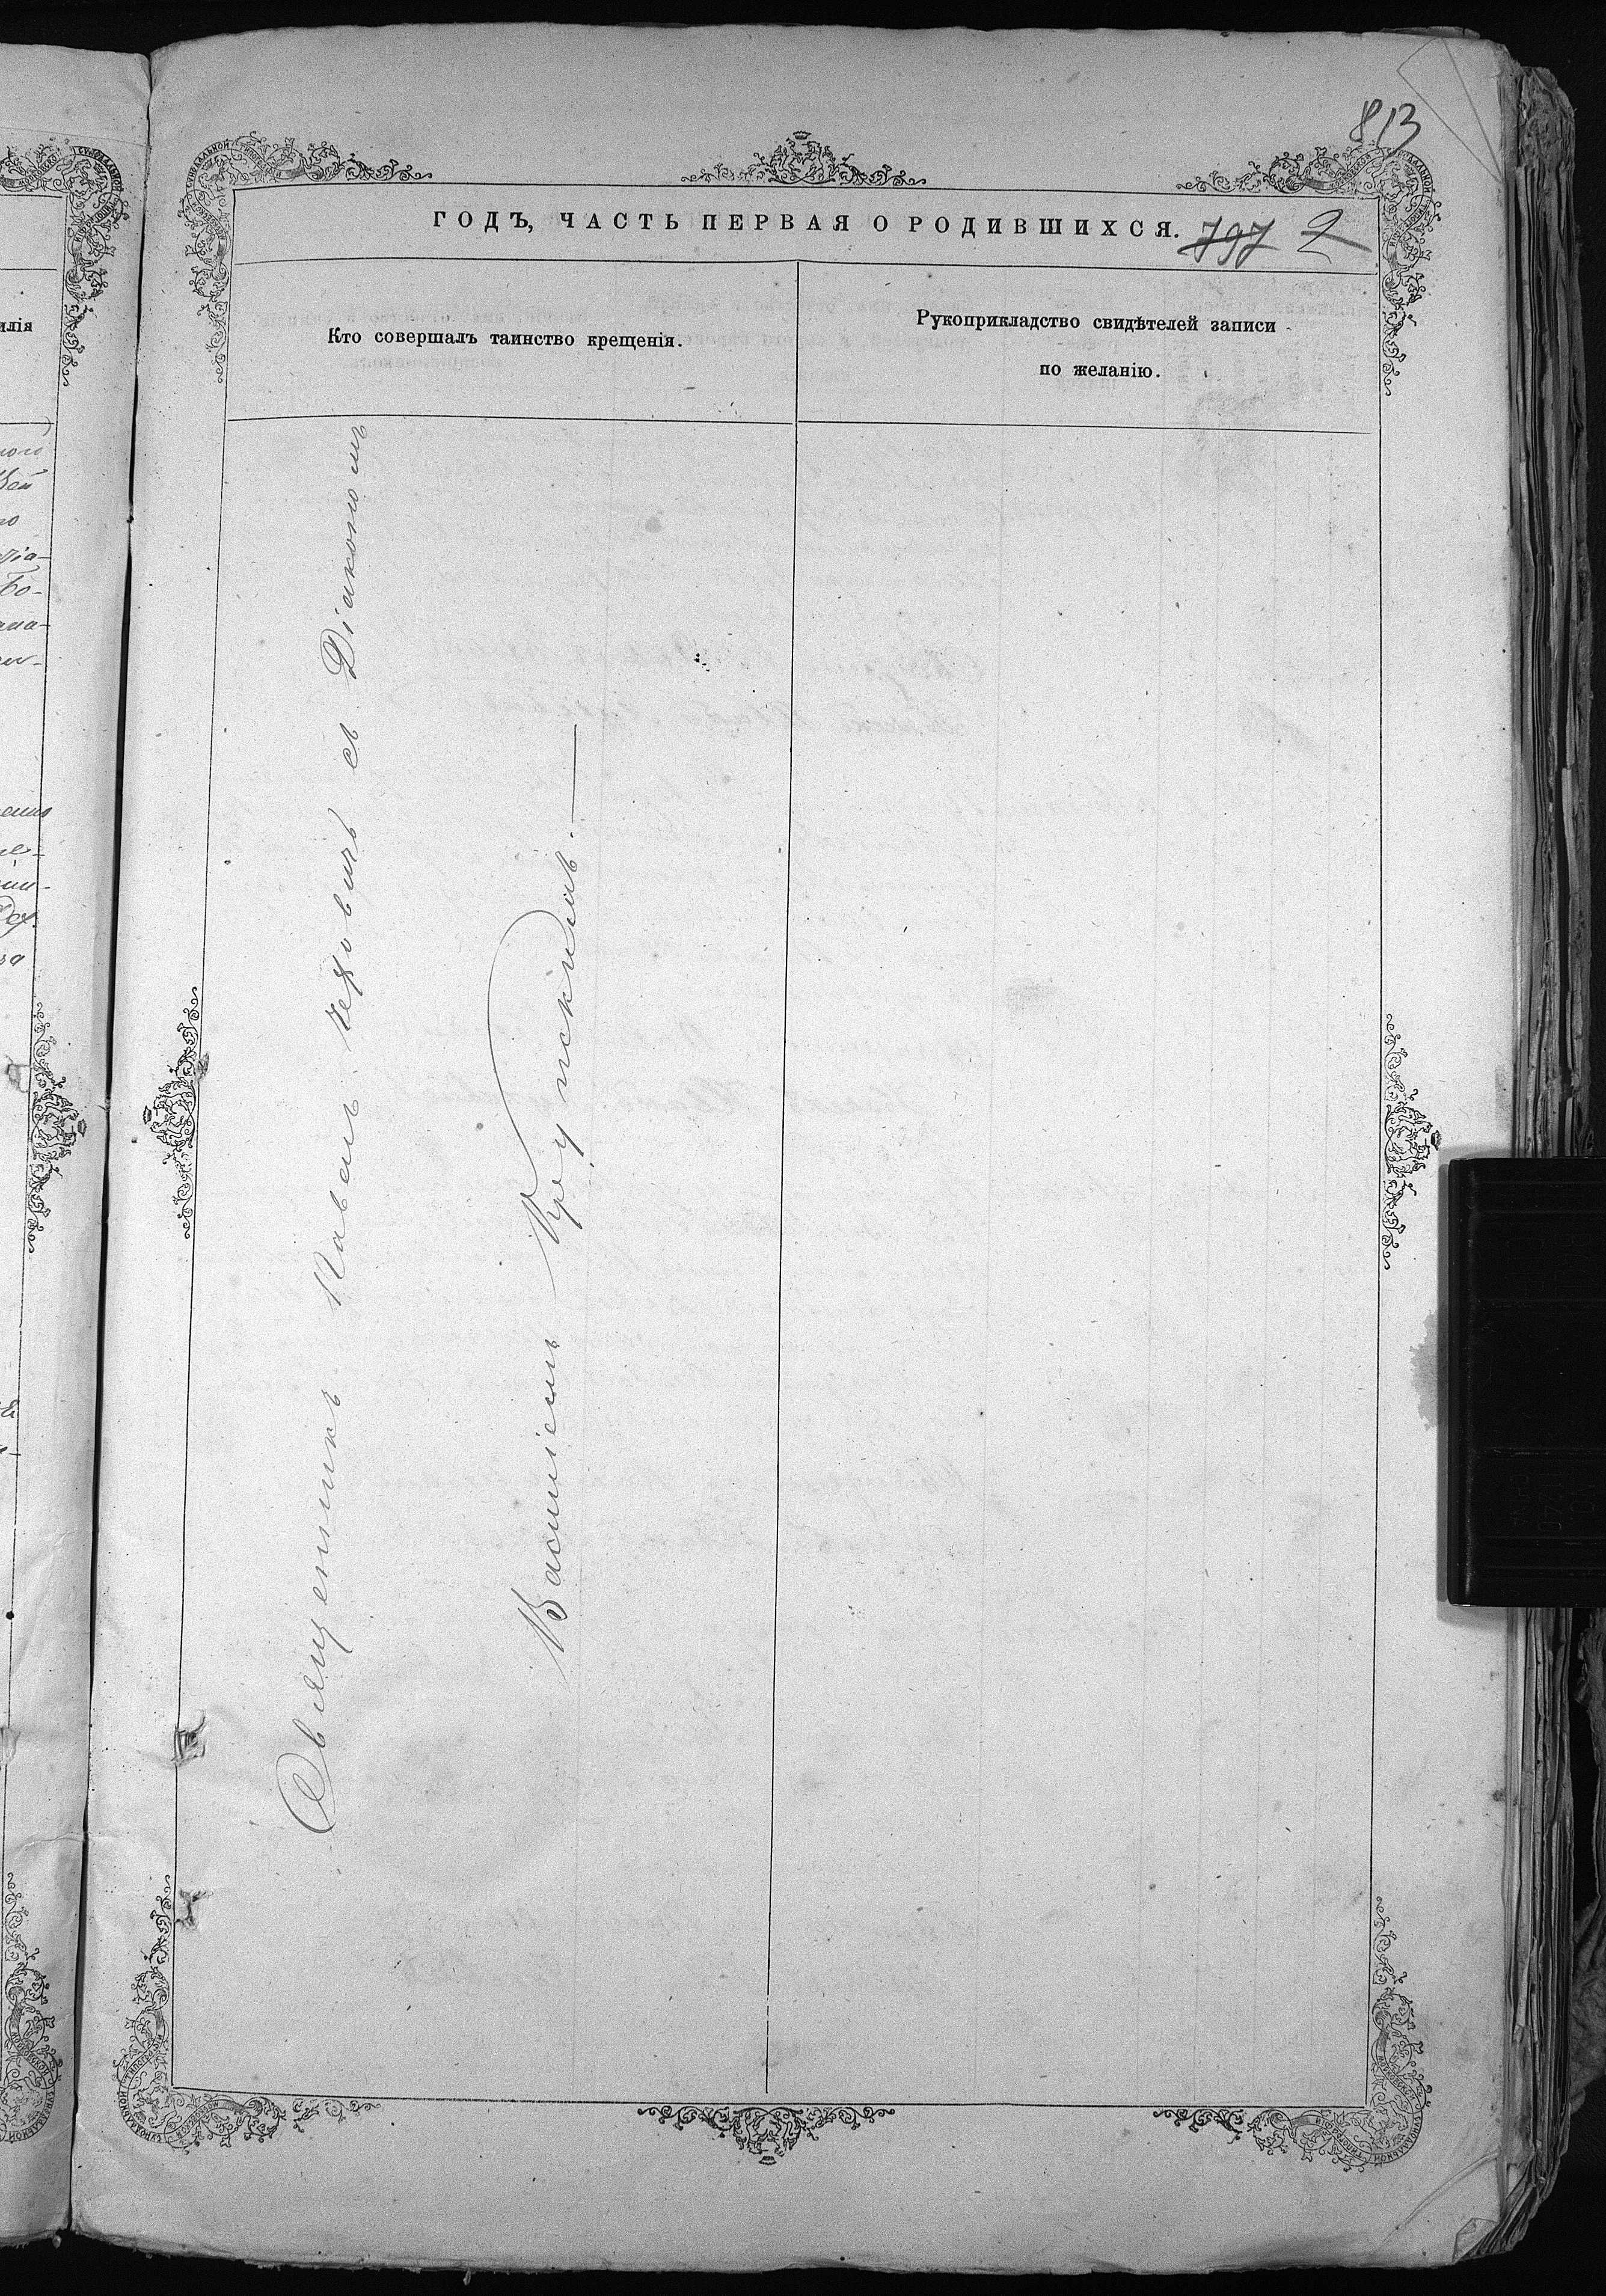 813
ГОДЪ, ЧАСТЬ ПЕРВАЯ О РОДИВШИХСЯ. 797 2
Кто совершалъ таинство крещенія.
Рукоприкладство свидѣтелей записи
по желанію.
Священникъ Павелъ Чеховичъ съ Діакономъ
Василіемъ Крупскимъ. —
илія